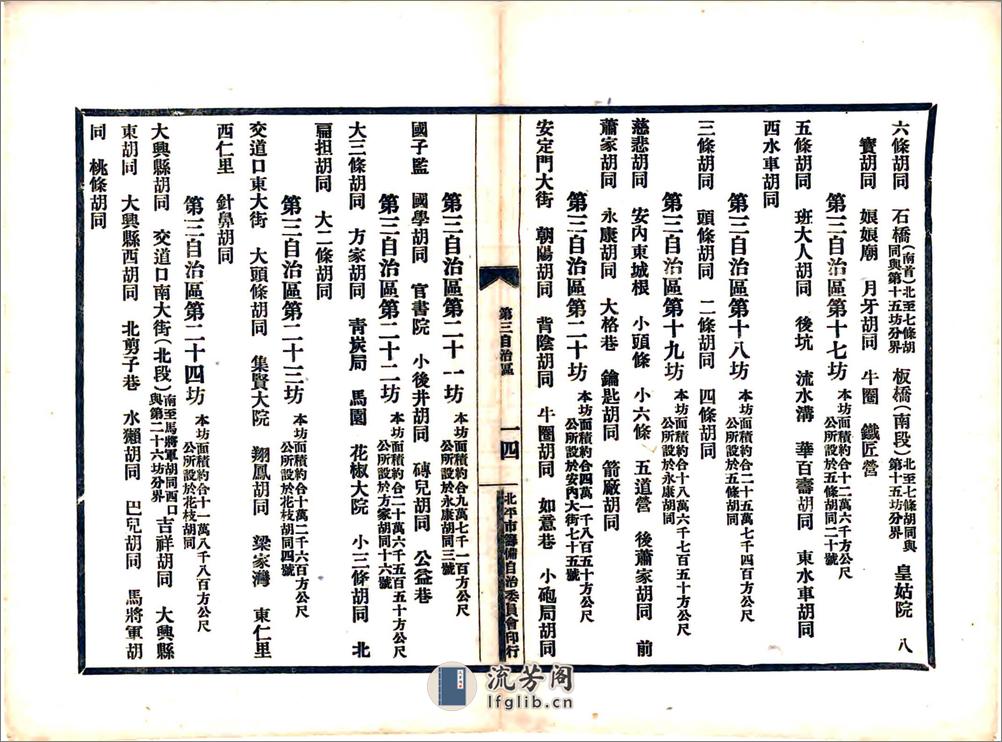 六條胡同　石橋(南首)北至七條胡同與第十五坊分界　板橋(南段)北至七條胡同與第十五坊分界　皇姑院　八
寶胡同　娘娘廟　月牙胡同　牛圈　鐵匠營
第三自治區第十七坊　本坊面積約合十二萬六千方公尺　公所設於五條胡同二十號
五條胡同　班大人胡同　後坑　流水溝　華百壽胡同　東水車胡同
西水車胡同
第三自治區第十八坊　本坊面積約合二十五萬七千四百方公尺　公所設於五條胡同
三條胡同　頭條胡同　二條胡同　四條胡同
第三自治區第十九坊　本坊面積約合十八萬六千七百五十方公尺　公所設於永康胡同
慈悲胡同　安內東城根　小頭條　小六條　五道營　後蕭家胡同　前
蕭家胡同　永康胡同　大格巷　鑰匙胡同　箭廠胡同
第三自治區第二十坊　本坊面積約合四萬一千八百五十方公尺　公所設於安內大街七十五號
安定門大街　朝陽胡同　背陰胡同　牛圈胡同　如意巷　小砲局胡同
第三自治區
一四
北平市籌備自治委員會印行
第三自治區第二十一坊　本坊面積約合九萬七千一百方公尺　公所設於永康胡同三號
國子監　國學胡同　官書院　小後井胡同　磚兒胡同　公益巷
第三自治區第二十二坊　本坊面積約合二十萬六千五百五十方公尺　公所設於方家胡同十六號
大三條胡同　方家胡同　青炭局　馬園　花椒大院　小三條胡同　北
扁担胡同　大二條胡同
第三自治區第二十三坊　本坊面積約合十萬二千六百方公尺　公所設於花枝胡同四號
交道口東大街　大頭條胡同　集賢大院　翔鳳胡同　梁家灣　東仁里
西仁里　針鼻胡同
第三自治區第二十四坊　本坊面積約合十一萬八千八百方公尺　公所設於花枝胡同
大興縣胡同　交道口南大街(北段)南至馬將軍胡同西口與第二十六坊分界　吉祥胡同　大興縣
東胡同　大興縣西胡同　北剪子巷　水獺胡同　巴兒胡同　馬將軍胡
同　桃條胡同
流芳阁
lfglib.cn